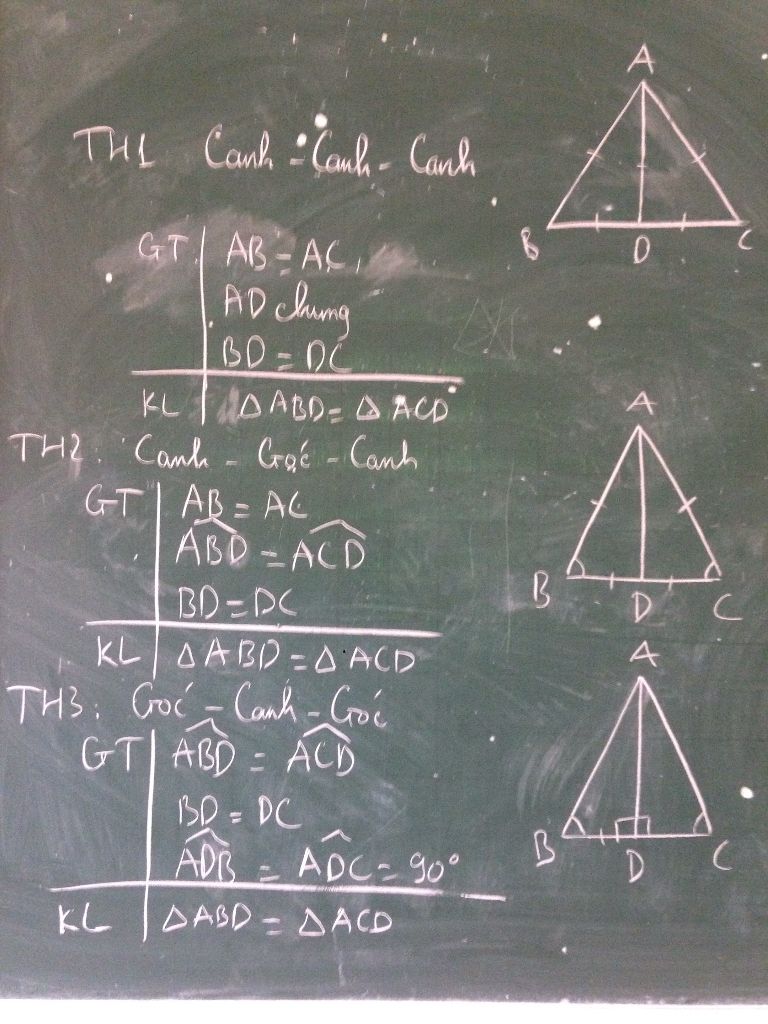 TH1 Canh - Canh - Canh
GT AB = AC
AD chung
BD = DC
KL Δ ABD = Δ ACD
A
B D C
TH2: Canh - Goć - Canh
GT AB = AC
ABD̂ = ACD̂
BD = DC
KL Δ ABD = Δ ACD
A
B D C
TH3: Goć - Canh - Goć
GT ABD̂ = ACD̂
BD = DC
ADB̂ = ADĈ = 90°
KL Δ ABD = Δ ACD
A
B D C